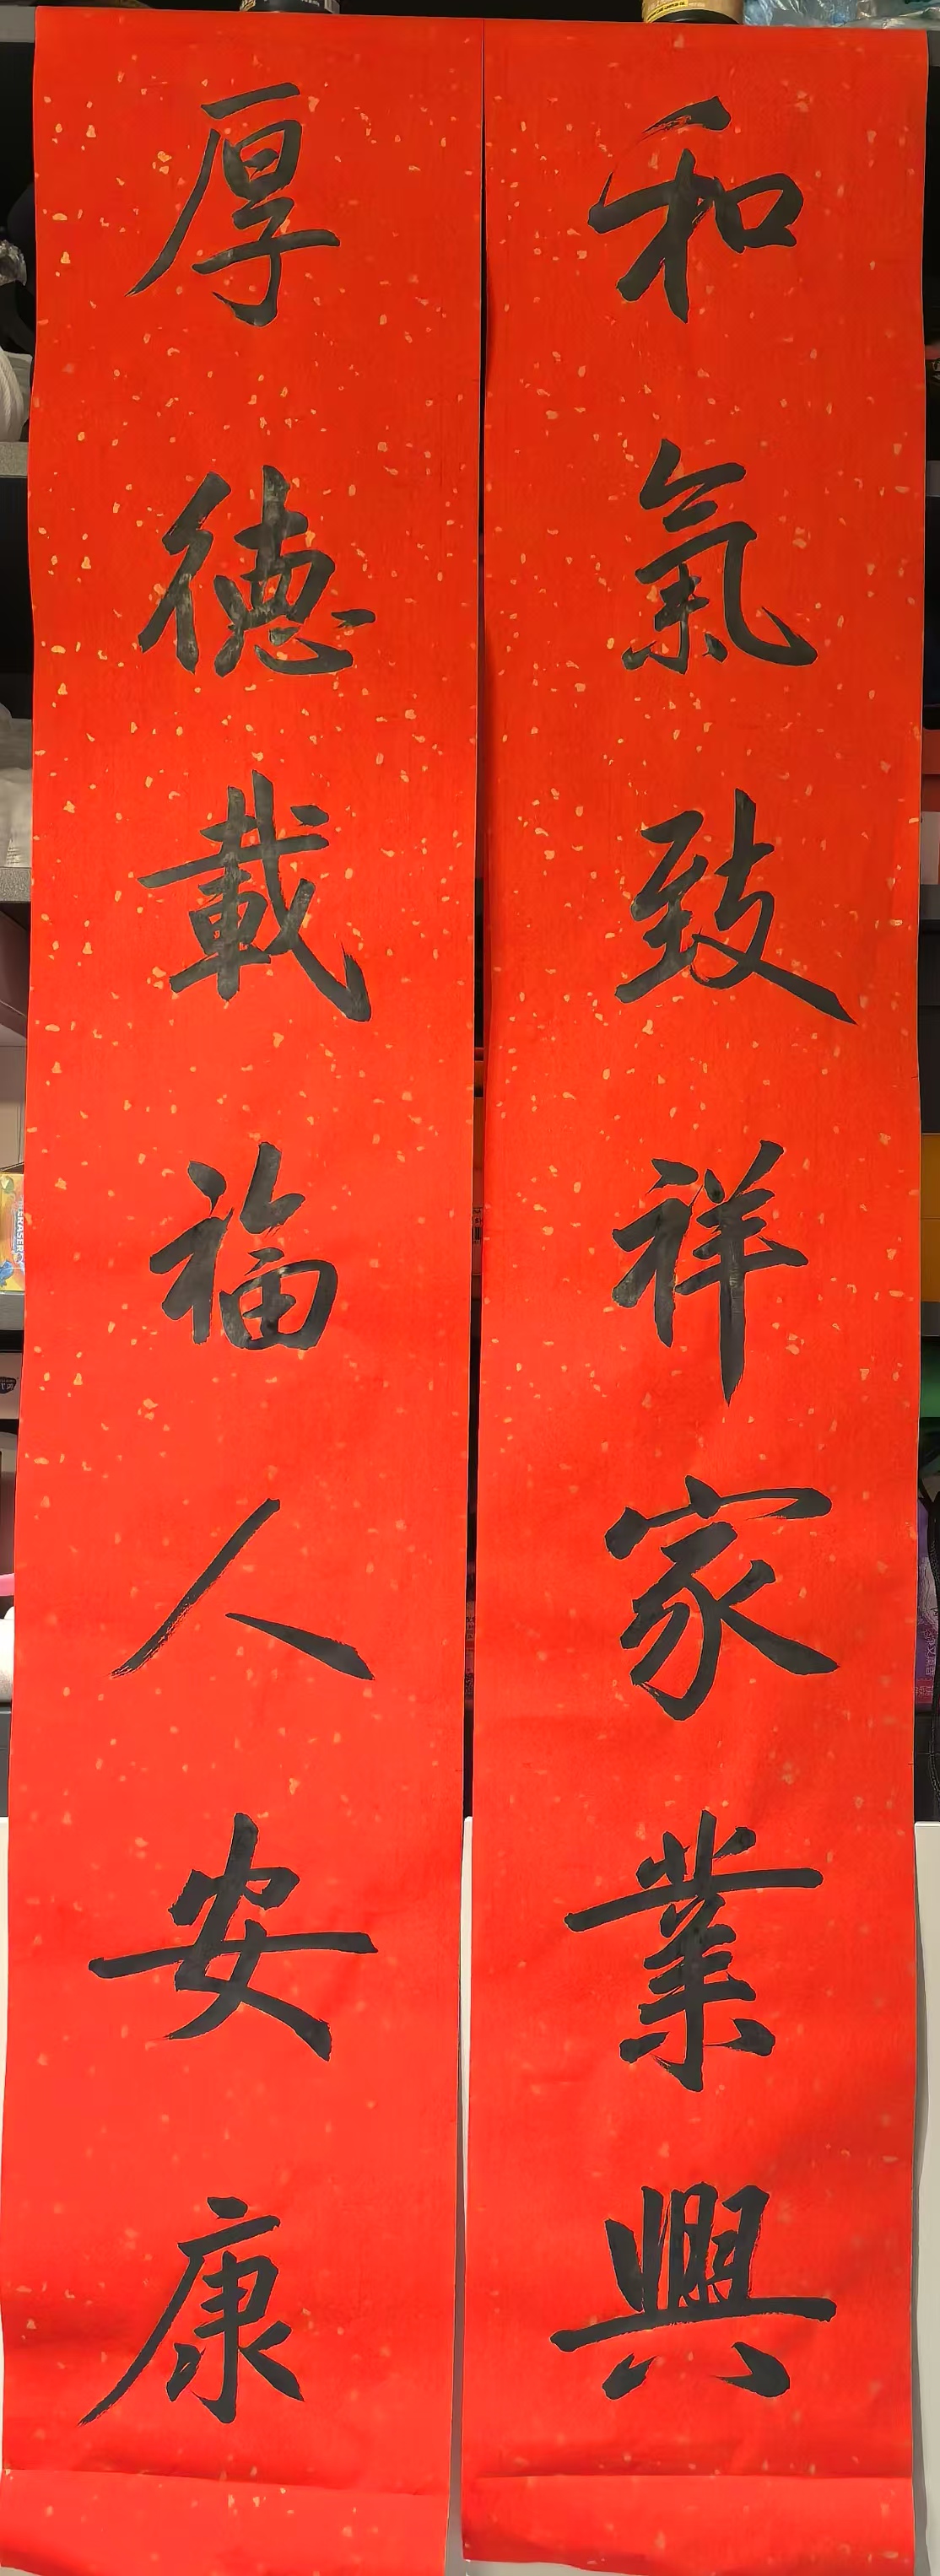 和氣致祥家業興
厚德載福人安康
ERASER